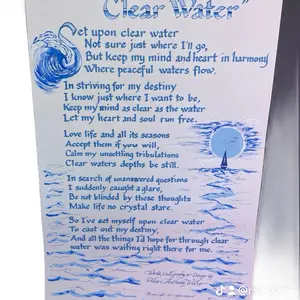 Clear Water"
Set upon clear water
Not sure just where I'll go,
But keep my mind and heart in harmony
Where peaceful waters flow.
In striving for my destiny
I know just where I want to be,
Keep my mind as clear as the water
Let my heart and soul run free.
Love life and all its seasons
Accept them if you will,
Calm my unsettling tribulations
Clear waters depths be still.
In search of unanswered questions
I suddenly caught a glare,
Be not blinded by these thoughts
Make life no crystal stare.
So I've set myself upon clear water
To cast out my destiny,
And all the things I'd hope for through clear
water was waiting right there for me.
Words, Calligraphy & Design by